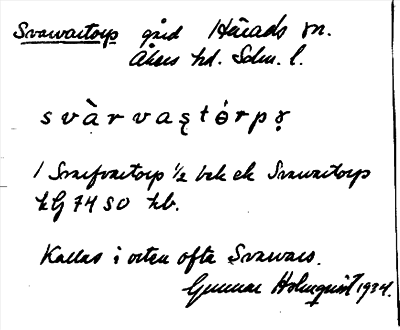 Svarvaretorp gård Härads sn.
Åkers hd. Sdm. l.
svàrvaştórpƍ
1 Svarfvaretorp ½ bek ek Svarvaretorp
hg 74 SO kb.
Kallas i orten ofta Svarvars.
Gunnar Holmquist 1934.